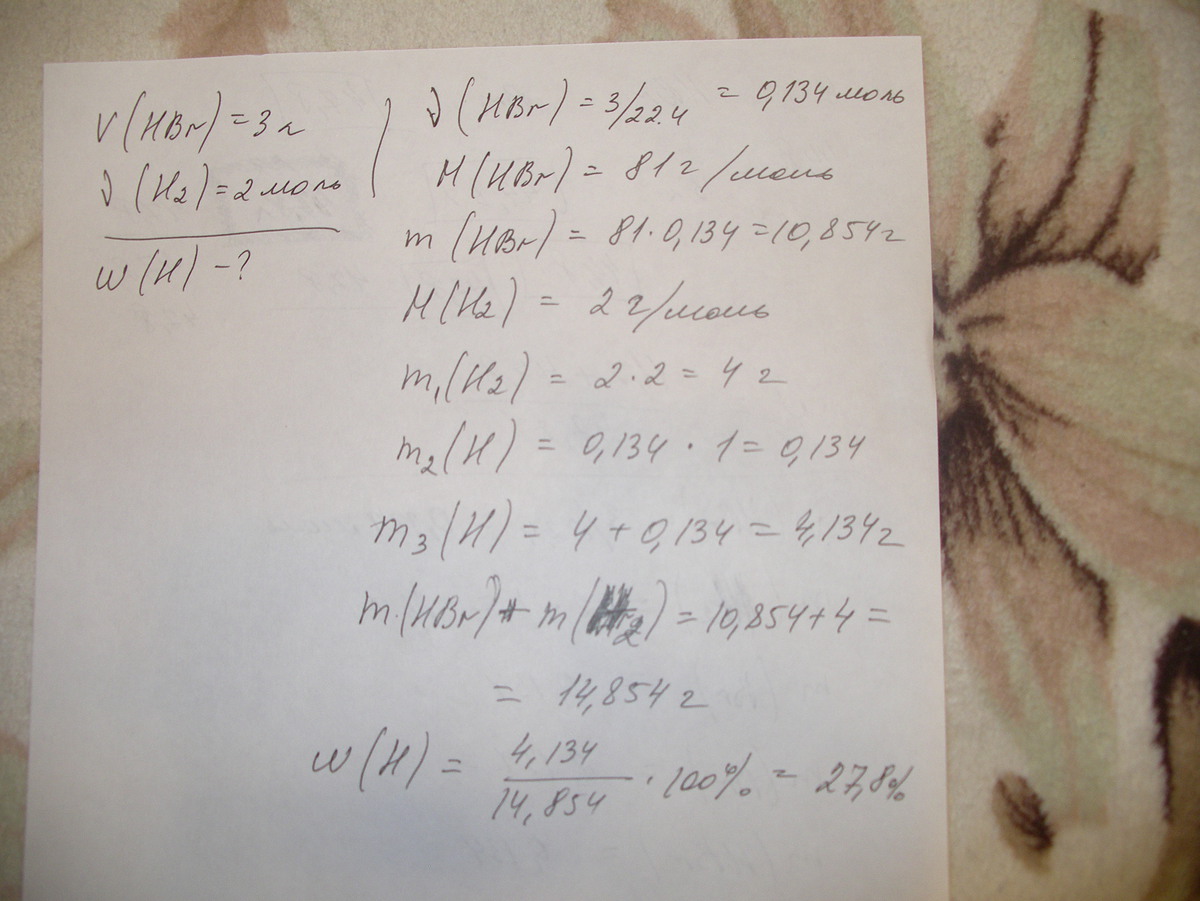 V(HBr) = 3 л
ν(H2) = 2 моль
w(H) - ?
ν(HBr) = 3/22.4 = 0,134 моль
M(HBr) = 81 г/моль
m(HBr) = 81·0,134 = 10,854 г
M(H2) = 2 г/моль
m1(H2) = 2·2 = 4 г
m2(H) = 0,134 · 1 = 0,134
m3(H) = 4 + 0,134 = 4,134 г
m(HBr) + m(H2) = 10,854 + 4 =
= 14,854 г
w(H) = 4,134/14,854 · 100% = 27,8%